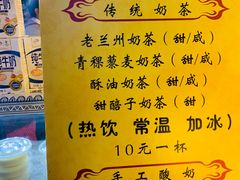 传统奶茶
老兰州奶茶（甜/咸）
青稞藜麦奶茶（甜/咸）
酥油奶茶（甜/咸）
甜醅子奶茶（甜）
（热饮 常温 加冰）
10元一杯
手工酸奶